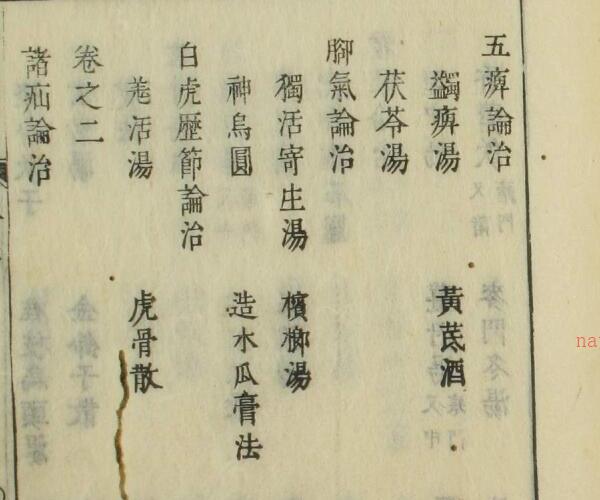 五痺論治
蠲痺湯 黃芪酒
茯苓湯
腳氣論治
獨活寄生湯 檳榔湯
神烏圓 造木瓜膏法
白虎歷節論治
羗活湯 虎骨散
卷之二
諸疝論治
na